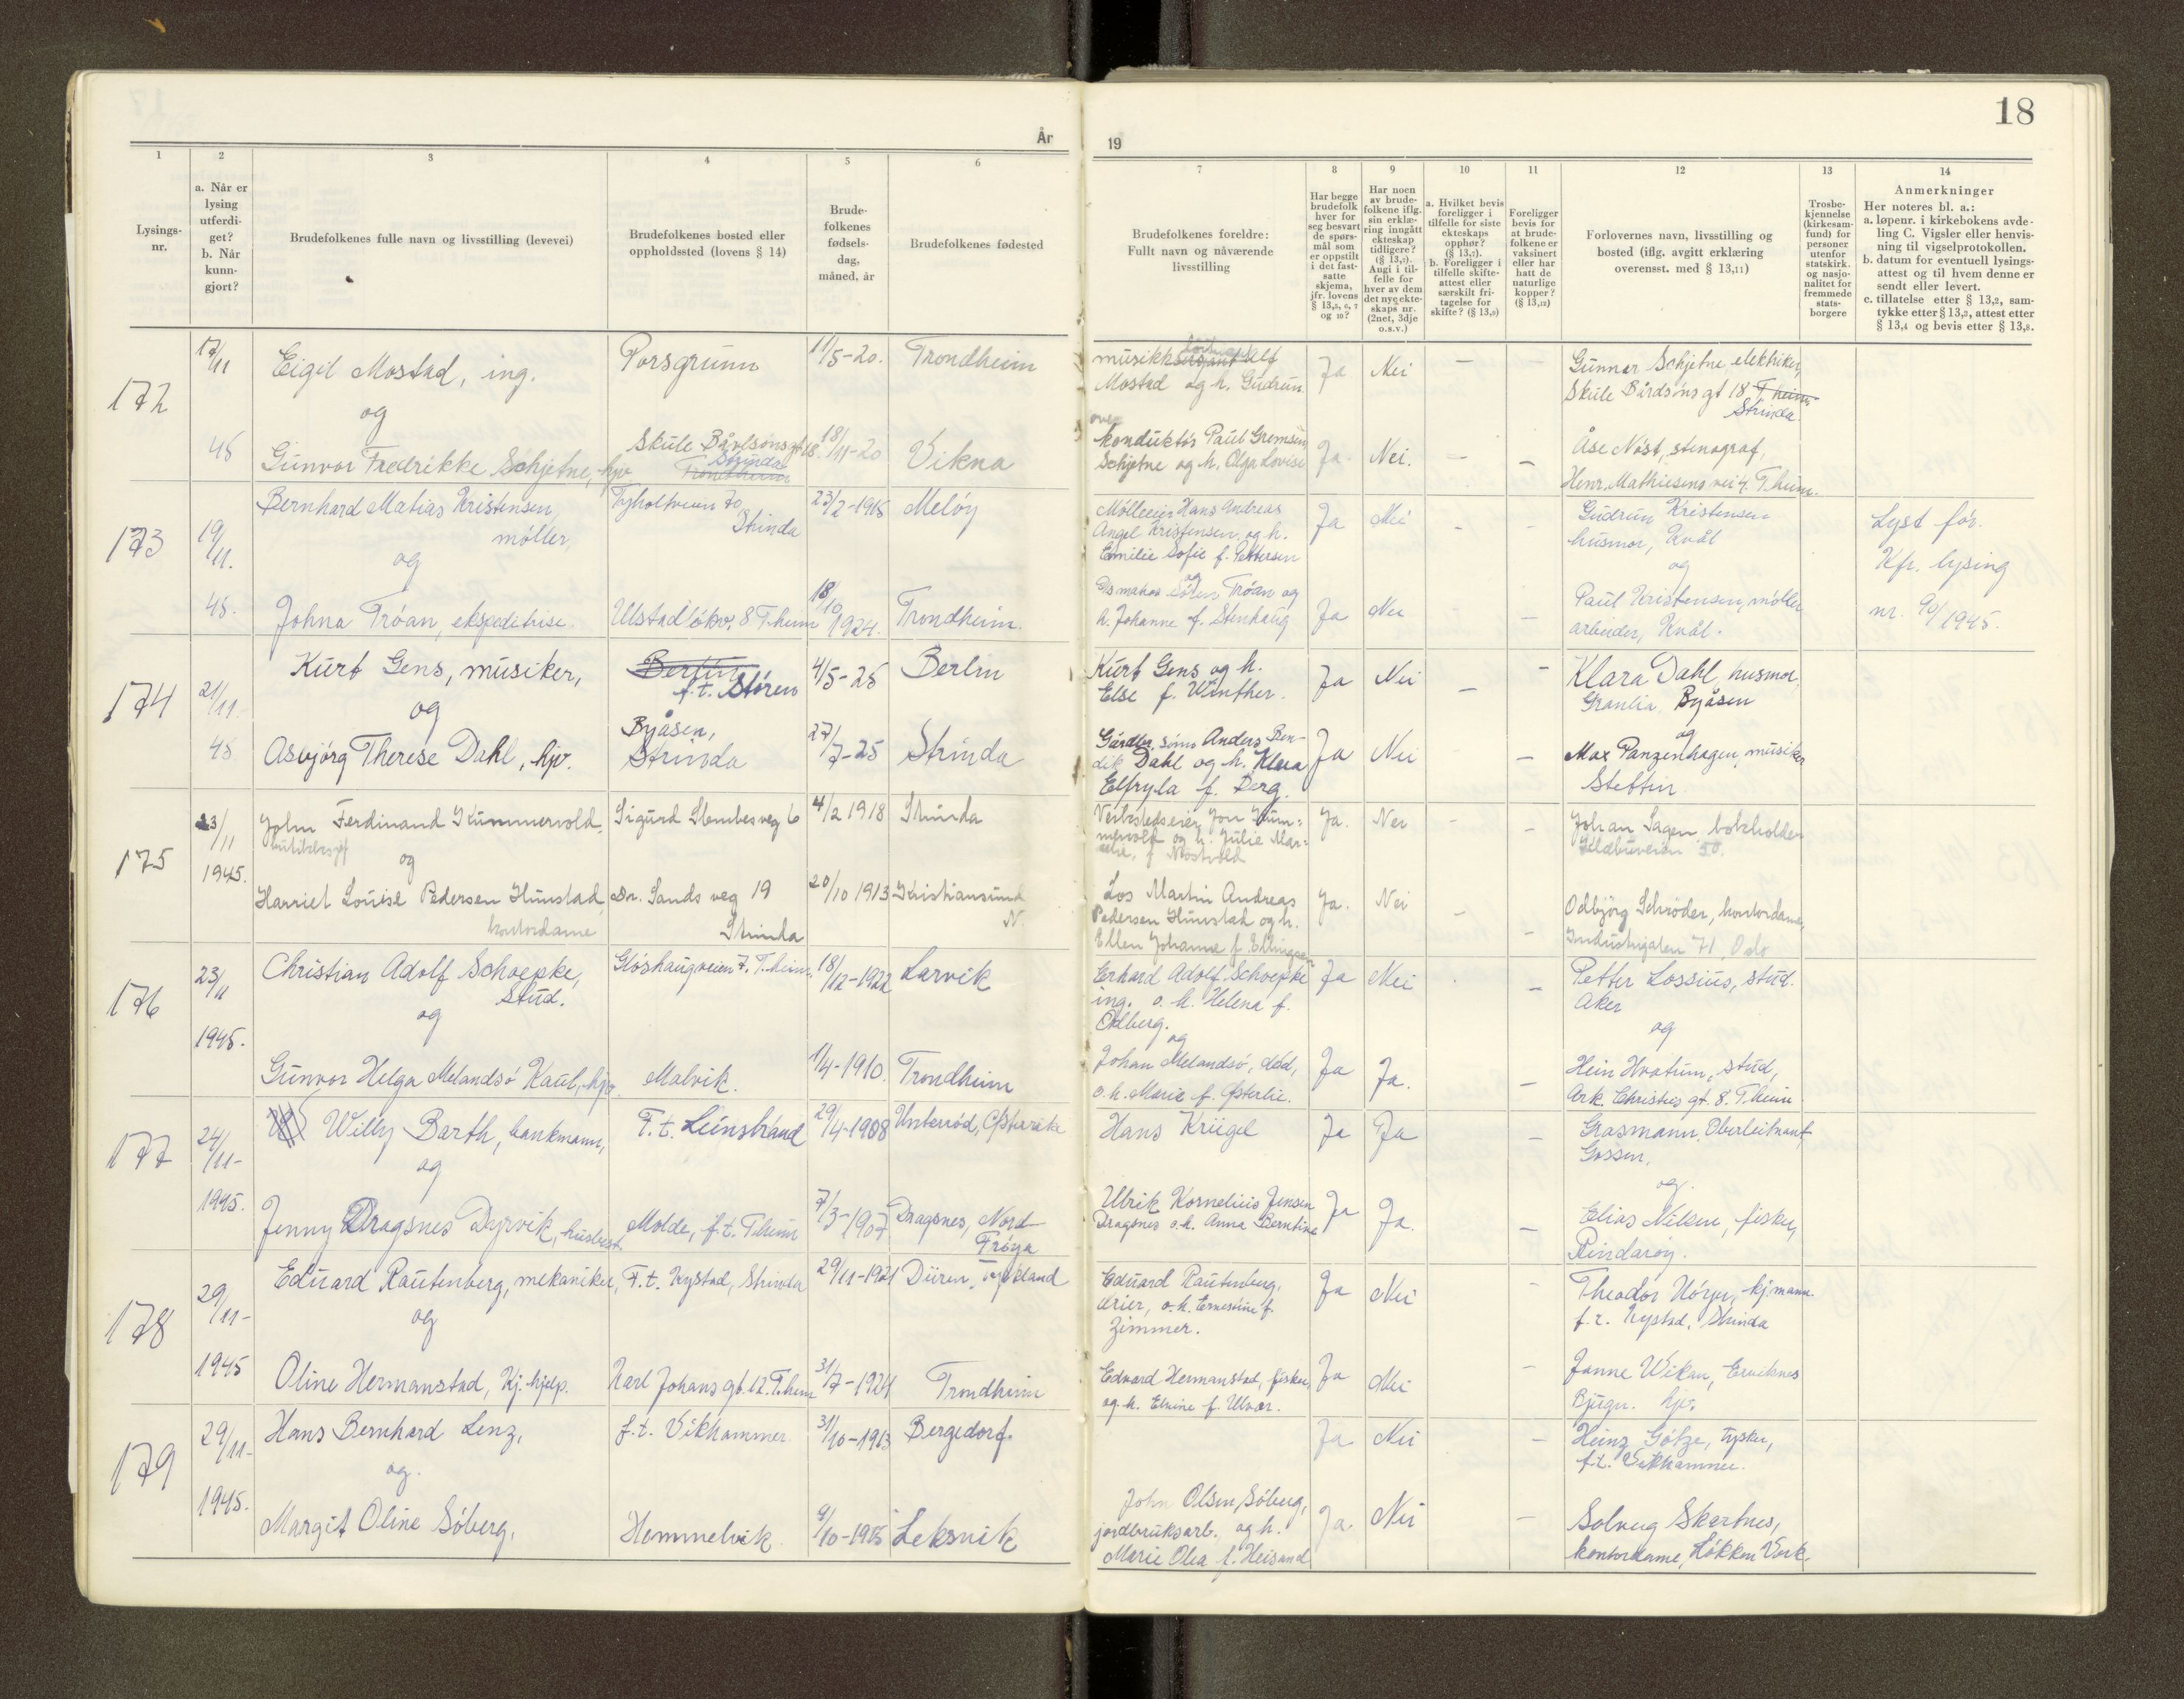 18
År
19
1
2
3
4
5
6
7
8
9
10
11
12
13
14
Lysings-
nr.
a. Når er
lysing
utferdi-
get?
b. Når
kunn-
gjort?
Brudefolkenes fulle navn og livsstilling (levevei)
Brudefolkenes bosted eller
oppholdssted (lovens § 14)
Brude-
folkenes
fødsels-
dag,
måned, år
Brudefolkenes fødested
Brudefolkenes foreldre:
Fullt navn og nåværende
livsstilling
Har begge
brudefolk
hver for
seg besvart
de spørs-
mål som
er oppstilt
i det fast-
satte
skjema,
jfr. lovens
§ 13,5, 6, 7
og 10?
Har noen
av brude-
folkene iflg.
sin erklæ-
ring inngått
ekteskap
tidligere?
(§ 13,7).
Angi i til-
felle for
hver av dem
det nye ekte-
skaps nr.
(2net, 3dje
o.s.v.)
a. Hvilket bevis
foreligger i
tilfelle for siste
ekteskaps
opphør?
(§ 13,7).
b. Foreligger i
tilfelle skifte-
attest eller
særskilt fri-
tagelse for
skifte? (§ 13,9)
Foreligger
bevis for
at brude-
folkene er
vaksinert
eller har
hatt de
naturlige
kopper?
(§ 13,12)
Forlovernes navn, livsstilling og
bosted (iflg. avgitt erklæring
overensst. med § 13,11)
Trosbe-
kjennelse
(kirkesam-
fund) for
personer
utenfor
statskirk.
og nasjo-
nalitet for
fremmede
stats-
borgere
Anmerkninger
Her noteres bl. a.:
a. løpenr. i kirkebokens avde-
ling C. Vigsler eller henvis-
ning til vigselprotokollen.
b. datum for eventuell lysings-
attest og til hvem denne er
sendt eller levert.
c. tillatelse etter § 13,2, sam-
tykke etter § 13,3, attest etter
§ 13,4 og bevis etter § 13,8.
172
17/11
45
Eigil Mostad, ing.
og
Gunvor Fredrikke Schjetne, hjv
Porsgrunn
Skule Bårdsønsgt 18.
Strinda
Trondheim
11/5-20.
18/11-20
Trondheim
Vikna
musikksersjant Alf
Mostad og h. Gudrun
over
konduktør Paul
Schjetne og h. Olga Lovise
Ja
Nei
–
–
Ja.
Nei.
–
–
Gunnar Schjetne, elektriker,
Skule Bårdsøns gt 18 T.heim
Strinda.
Åse Nøst, stenograf,
Henr. Mathiesens vei 4. T.heim.
173
19/11.
45.
Bernhard Matias Kristensen,
møller,
og
Johna Tróan, ekspeditrise.
Tyholtveien 70
Strinda
Ulstadløkv. 8 T.heim
23/2-1918
18/10 1924.
Meløy
Trondheim.
Mølleeier Hans Andreas
Angel Kristensen. og h.
Emilie Sofie f. Pettersen
og
Søren Tróan og
h. Johanne f. Stenhaug
Ja
Nei
–
–
Ja
Nei
–
–
Gudrun Kristensen
husmor, Kvål
og
Paul Kristensen, mølle
arbeider, Kvål.
Lyst før.
Kfr. lysing
nr. 90/1945.
174
21/11
45
Kurt Gens, musiker,
og
Asbjørg Therese Dahl, hjv.
Berlin
f.t. Støren
Byåsen,
Strinda
4/5-25
27/7-25
Berlin
Strinda
Kurt Gens og h.
Else f. Winther.
Gårdbr. sønn Anders Ben-
dik Dahl og h. Klara
Elfryda f. Berg.
Ja
Nei
–
–
Ja
Nei
–
–
Klara Dahl, husmor,
Granlia, Byåsen
og
Max Panzenhagen, musiker
Stettin
175
23/11
1945.
John Ferdinand Kummervold,
og
Harriet Louise Pedersen Hunstad,
kontordame
Sigurd Slembes veg 6
Dr. Sands veg 19
Strinda
4/2 1918
20/10 1913
Strinda
Kristiansund
N.
Verkstedseier Jon Kum-
mervold og h. Julie Mar-
Los Martin Andreas
Pedersen Hunstad og h.
Ellen Johanne f. Ellingsen
Ja.
Nei
–
–
Ja.
Nei
–
–
Johan Sagen,
50.
Odbjørg Schrøder, kontordame,
Industrigaten 71 Oslo
176
23/11
1945.
Christian Adolf Schoepke,
stud.
og
Gunvor Helga Melandsø Kaul, hjv.
Gløshaugveien 7. T.heim.
Malvik.
18/12-1922
1/4-1910.
Larvik
Trondheim
Erhard Adolf Schoepke
ing. o. h. Helena f.
Odberg.
og
Johan Melandsø, død,
o. h. Marie f. Østerlie.
Ja
Nei
–
Ja
Ja.
–
Petter Lossius, stud.
Aker
og
Hein Hvatum, stud,
Ark. Christies gt. 8. T.heim.
177
24/11-
1945.
Willy Barth, bankmann,
og
Jenny Dragsnes Dyrvik, husbest.
F.t. Leinstrand
Molde, f.t. T.heim
29/4-1908
7/3-1907
Unterrød, Østerrike
Dragsnes, Nord-
Frøya
Hans Krügel
Ulrik Kornelius Jensen
Dragsnes o.h. Anna Berntine
Ja
Ja
–
Ja
Ja.
–
Grasmann, Oberleitnant,
Gossen.
og.
Elias Nilsen, fisker,
Rindarøy.
178
29/11-
1945
Eduard Rautenberg, mekaniker,
og
Oline Hermanstad, kj. hjelp.
F.t. Kystad, Strinda
Karl Johans gt. 12. T.heim
29/11-1921
31/7-1924
Düren, Tyskland
Trondheim
Eduard Rautenberg,
drier, o.h. Ernestine f.
Zimmer.
Edvard Hermanstad, fisker,
og h. Elvine f. Ulvær.
Ja
Nei
–
Ja
Nei
–
Theodor kj.mann.
f.t. Kystad, Strinda
Janne Wikan,
Bjugn. hjv.
179
29/11-
1945.
Hans Bernhard Lenz,
og.
Margit Oline Søberg,
f.t. Vikhammer.
Hemnelvik
31/10-1913
9/10-1915
Bergedorf.
Leksvik
John Olsen Søberg,
jordbruksarb. og h.
Marie Olea f. Heisand
Ja
Nei
–
Ja
Nei
–
Heinz Götze, tysker,
f.t. Vikhammer.
Solveig Skartnes,
kontordame, Løkken Verk.